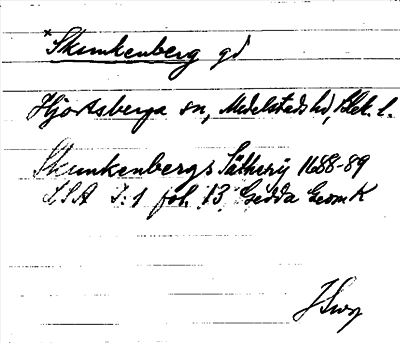 *Skunkenberg gd
Hjortsberga sn, Medelstads hd, Blek. l.
Skunkenbergs Sätherij 1688-89
LSA I:1 fol. 13, Gedda Geom K